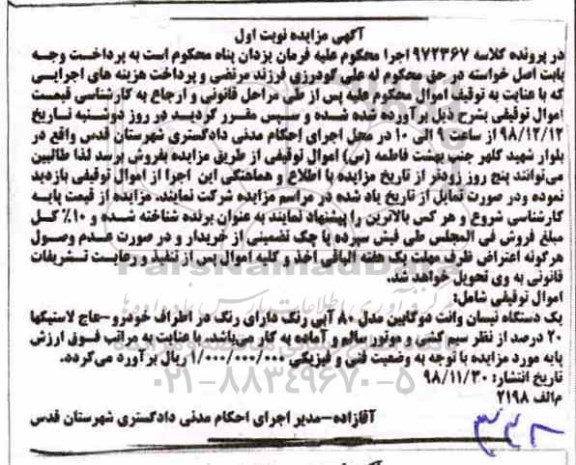 آگهی مزایده نوبت اول
در پرونده کلاسه ۹۷۲۳۶۷ اجرا محکوم علیه فرمان یزدان پناه محکوم است به پرداخت وجه
بابت اصل خواسته در حق محکوم له علی گودرزی فرزند مرتضی و پرداخت هزینه های اجرایی
که با عنایت به توقیف اموال محکوم علیه پس از طی مراحل قانونی و ارجاع به کارشناسی قیمت
اموال توقیفی بشرح ذیل برآورده شده شده و سپس مقرر گردید در روز دوشنبه تاریخ
۹۸/۱۲/۱۲ از ساعت ۹ الی ۱۰ در محل اجرای احکام مدنی دادگستری شهرستان قدس واقع در
بلوار شهید کلهر جنب بهشت فاطمه (س) اموال توقیفی از طریق مزایده بفروش برسد لذا طالبین
می‌توانند پنج روز زودتر از تاریخ مزایده با اطلاع و هماهنگی این اجرا از اموال توقیفی بازدید
نموده ودر صورت تمایل از تاریخ یاد شده در مراسم مزایده شرکت نمایند. مزایده از قیمت پایه
کارشناسی شروع و هر کس بالاترین را پیشنهاد نمایند به عنوان برنده شناخته شده و ۱۰٪ کل
مبلغ فروش فی المجلس طی فیش سپرده یا چک تضمینی از خریدار و در صورت عدم وصول
هرگونه اعتراض ظرف مهلت یک هفته الباقی اخذ و کلیه اموال پس از تنفیذ و رعایت تشریفات
قانونی به وی تحویل خواهد شد.
اموال توقیفی شامل:
یک دستگاه نیسان وانت دوگابین مدل ۸۰ آبی رنگ دارای رنگ در اطراف خودرو-عاج لاستیکها
۲۰ درصد از نظر سیم کشی و موتور سالم و آماده به کار می‌باشد. با عنایت به مراتب فوق ارزش
پایه مورد مزایده با توجه به وضعیت فنی و فیزیکی ۱/۰۰۰/۰۰۰/۰۰۰ ریال برآورد می‌گردد.
تاریخ انتشار: ۹۸/۱۱/۳۰
م‌الف ۲۱۹۸
آقازاده-مدیر اجرای احکام مدنی دادگستری شهرستان قدس
۰۲۱-۸۸۳۴۹۶۷۰-۵